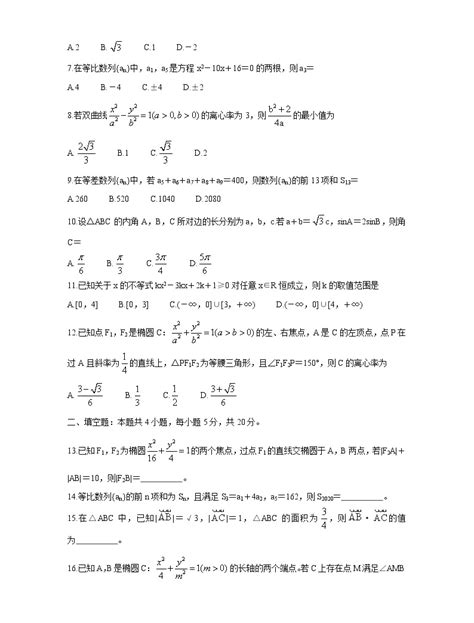 A.2 B.√3 C.1 D.-2
7.在等比数列{aₙ}中，a₁，a₅是方程 x²-10x+16=0 的两根，则 a₃=
A.4 B.-4 C.±4 D.±2
8.若双曲线 x²/a²-y²/b²=1(a>0,b>0) 的离心率为 3，则 (b²+2)/4a 的最小值为
A.2√3/3 B.1 C.√3/3 D.2
9.在等差数列{aₙ}中，若 a₅+a₆+a₇+a₈+a₉=400，则数列{aₙ}的前 13 项和 S₁₃=
A.260 B.520 C.1040 D.2080
10.设△ABC 的内角 A，B，C 所对边的长分别为 a，b，c.若 a+b=√3c，sinA=2sinB，则角
C=
A.π/6 B.π/3 C.3π/4 D.5π/6
11.已知关于 x 的不等式 kx²-3kx+2k+1≥0 对任意 x∈R 恒成立，则 k 的取值范围是
A.[0，4] B.[0，3] C.(-∞，0]∪[3，+∞) D.(-∞，0]∪[4，+∞)
12.已知点 F₁，F₂是椭圆 C：x²/a²+y²/b²=1(a>b>0) 的左、右焦点，A 是 C 的左顶点，点 P 在
过 A 且斜率为 1/4 的直线上，△PF₁F₂为等腰三角形，且∠F₁F₂P=150°，则 C 的离心率为
A.(3-√3)/6 B.1/3 C.1/2 D.(3+√3)/6
二、填空题：本题共 4 小题，每小题 5 分，共 20 分。
13.已知 F₁，F₂为椭圆 x²/16+y²/4=1 的两个焦点，过点 F₁的直线交椭圆于 A，B 两点，若|F₂A|+
|AB|=10，则|F₂B|=__________。
14.等比数列{aₙ}的前 n 项和为 Sₙ，且满足 S₃=a₁+4a₂，a₅=162，则 S₂₀₂₀=__________。
15.在△ABC 中，已知|AB|=√3，|AC|=1，△ABC 的面积为 3/4，则 AB·AC 的值
为__________。
16.已知 A，B 是椭圆 C：x²/4+y²/m²=1(m>0) 的长轴的两个端点。若 C 上存在点 M 满足∠AMB